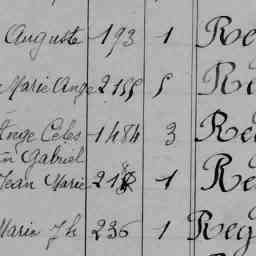 Auguste 193 1 Re
Marie Ange 2155 5 Re
Ange Celes 1484 3 Re
Gabriel
Jean Marie 1 Re
Marie Jh 236 1 Reg